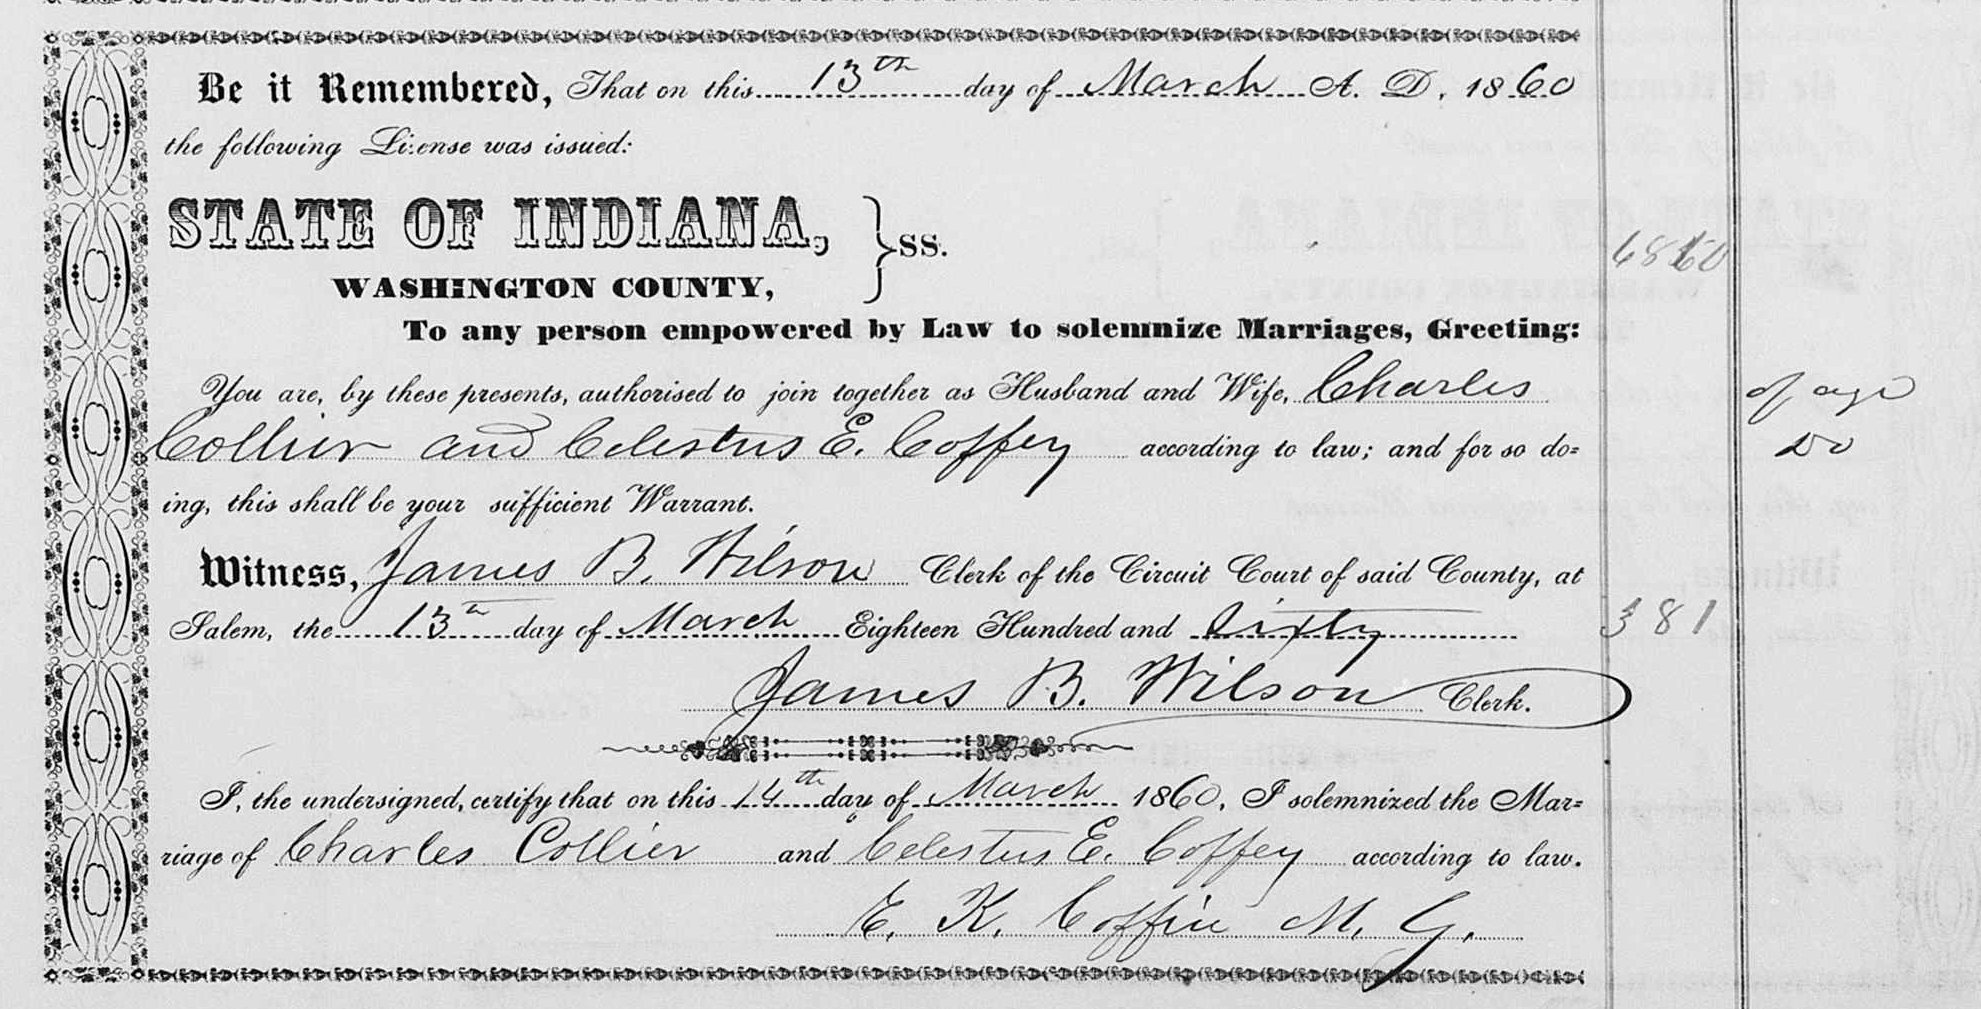 Be it Remembered, That on this 13th day of March A. D. 1860
the following License was issued:
STATE OF INDIANA, } SS.
WASHINGTON COUNTY,
To any person empowered by Law to solemnize Marriages, Greeting:
You are, by these presents, authorised to join together as Husband and Wife, Charles
of age
Collier and Celestus E. Coffey according to law; and for so do=
Do
ing, this shall be your sufficient Warrant.
Witness, James B. Wilson Clerk of the Circuit Court of said County, at
Salem, the 13th day of March Eighteen Hundred and Sixty
381
James B. Wilson Clerk.
I, the undersigned, certify that on this 14th day of March 1860, I solemnized the Mar=
riage of Charles Collier and Celestus E. Coffey according to law.
E. K. Coffin M. G.